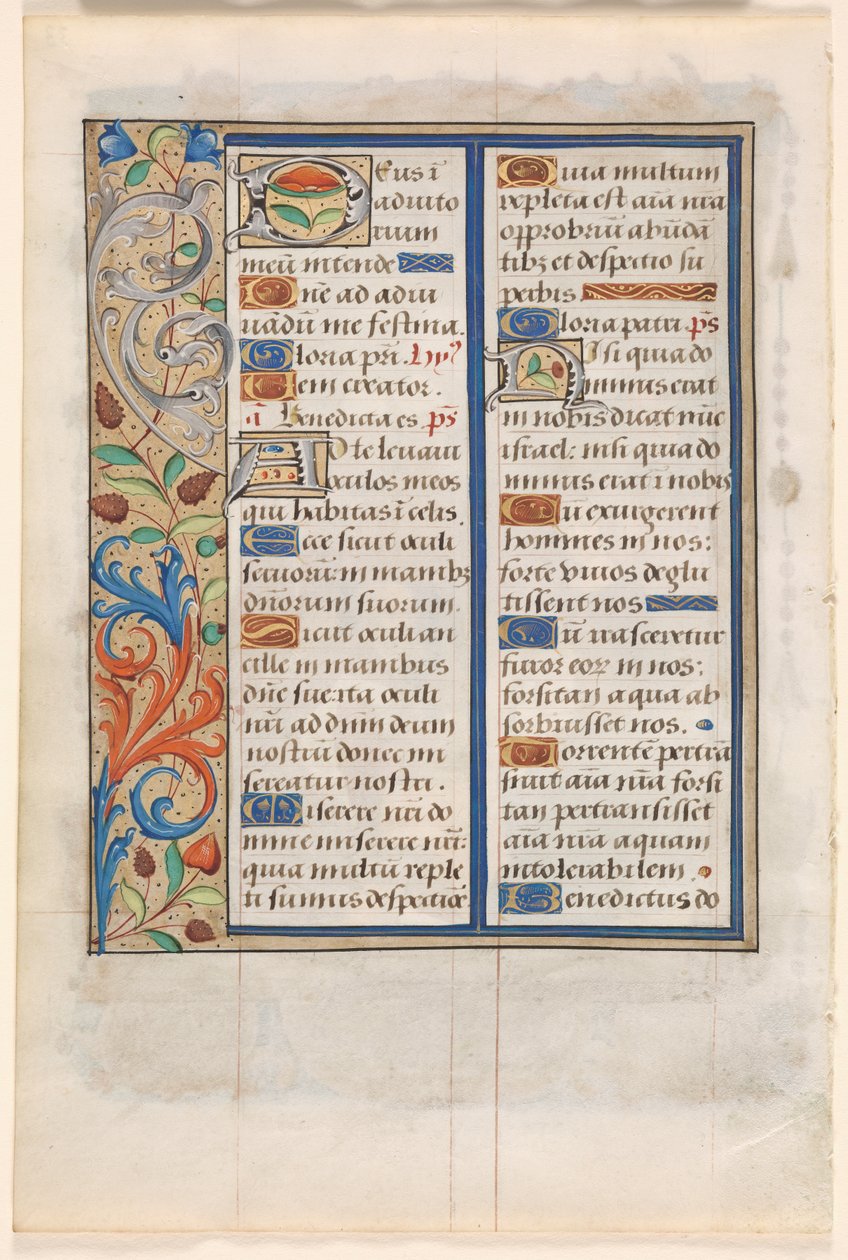 Deus ī
adiuto
rium
meū intende
Dne ad adiu
uādū me festina.
Gloria pri. hy9
Veni creator.
a Benedicta es. ps
Ad te leuaui
oculos meos
qui habitas ī celis.
Ecce sicut oculi
seruorū: in manibz
dnorum suorum.
Sicut oculi an
cille in manibus
dne sue: ita oculi
nri ad dnm deum
nostrū donec mi
sereatur nostri.
Miserere nri do
mine miserere nri:
quia multū reple
ti sumus despectiōe
Quia multum
repleta est aīa nra
opprobriū abūdā
tibz et despectio su
perbis
Gloria patri ps
Nisi quia do
minus erat
in nobis dicat nūc
israel: nisi quia do
minus erat ī nobis
Cū exurgerent
homines in nos:
forte viuos deglu
tissent nos
Cū irasceretur
furor eorꝝ in nos:
forsitan aqua ab
sorbuisset nos.
Torrentē pertrā
siuit aīa nra forsi
tan pertransisset
aīa nra aquam
intolerabilem.
Benedictus do